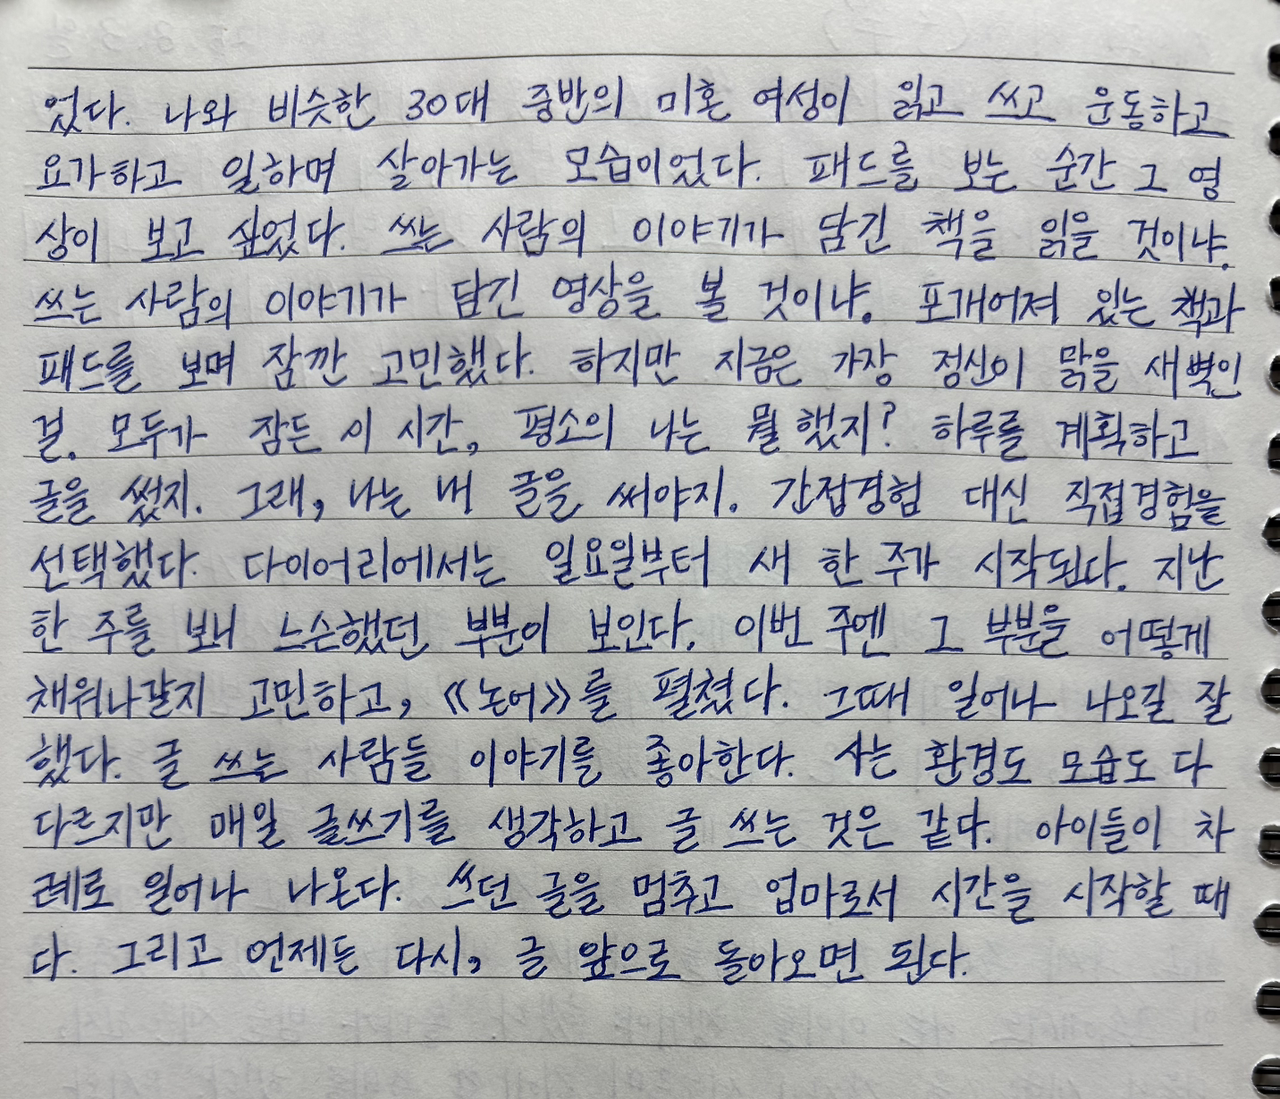 었다. 나와 비슷한 30대 중반의 미혼 여성이 읽고 쓰고 운동하고
요가하고 일하며 살아가는 모습이었다. 패드를 보는 순간 그 영
상이 보고 싶었다. 쓰는 사람의 이야기가 담긴 책을 읽을 것이냐.
쓰는 사람의 이야기가 담긴 영상을 볼 것이냐. 포개어져 있는 책과
패드를 보며 잠깐 고민했다. 하지만 지금은 가장 정신이 맑을 새벽인
걸. 모두가 잠든 이 시간, 평소의 나는 뭘 했지? 하루를 계획하고
글을 썼지. 그래, 나는 내 글을 써야지. 간접경험 대신 직접경험을
선택했다. 다이어리에서는 일요일부터 새 한 주가 시작된다. 지난
한 주를 보니 느슨했던 부분이 보인다. 이번 주엔 그 부분을 어떻게
채워나갈지 고민하고, 《논어》를 펼쳤다. 그때 일어나 나오길 잘
했다. 글 쓰는 사람들 이야기를 좋아한다. 사는 환경도 모습도 다
다르지만 매일 글쓰기를 생각하고 글 쓰는 것은 같다. 아이들이 차
례로 일어나 나온다. 쓰던 글을 멈추고 엄마로서 시간을 시작할 때
다. 그리고 언제든 다시, 글 앞으로 돌아오면 된다.